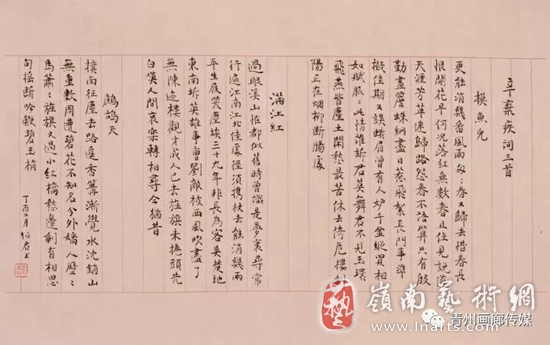 辛棄疾詞三首
摸魚兒
更能消幾番風雨匆々春又歸去惜春長
恨開花早何況落紅無數春且住見說道
天涯芳草迷歸路怨春不語算只有殷
勤畫簷蛛網盡日惹飛絮長門事準
擬佳期又誤蛾眉曾有人妒千金縱買相
如賦脈々此情誰訴君莫舞君不見玉環
飛燕皆塵土閑愁最苦休去倚危樓斜
陽正在煙柳斷腸處
滿江紅
過眼溪山怪都似舊時曾識是夢裏尋常
行遍江南江北佳處徑須攜杖去能消幾兩
平生屐笑塵埃三十九年非長為客吳楚地
東南坼英雄事曹劉敵被西風吹盡了
無陳迹樓觀才成人已去旌旗未捲頭先
白嘆人間哀樂轉相尋今猶昔
鷓鴣天
撲面征塵去路遙香篝漸覺水沉銷山
無重數周遭碧花不知名分外嬌人歷々
馬蕭々旌旗又過小紅橋愁邊剩有相思
句搖斷吟鞭碧玉梢
丁酉
嶺南藝術網
www.lnarts.com
青州画廊传媒